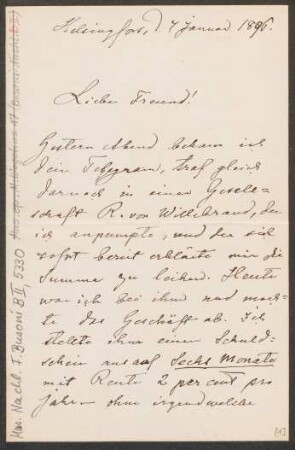 Helsingfors, d. 4 Januar 1896.
Lieber Freund!
Gestern Abend bekam ich
dein Telegram, traf gleich
darnach in einer Gesell-
schaft R. von Willebrand, den
ich anpumpte, und der sich
sofort bereit erklärte mir die
Summe zu leihen. Heute
war ich bei ihm und mach-
te das Geschäft ab. Ich
stellte ihm einen Schuld-
schein aus auf Sechs Monate
mit Rente 2 per cent pro
Jahr - ohne irgendwelche
Mus. Nachl. F. Busoni B II, 5330
[1]